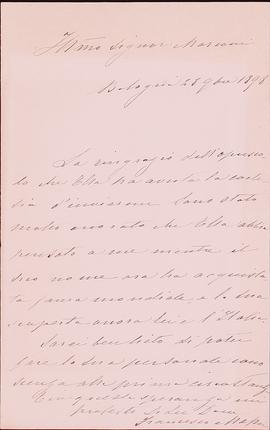 Ill.mo Signor Marconi
Bologna 28 9bre 1898
La ringrazio dell'opusco-
lo che Ella ha avuta la corte-
sia d'inviarmi. Sono stato
molto onorato che Ella abbia
pensato a me mentre il
suo nome ora ha acquista-
ta fama mondiale, e la sua
scoperta onora lei e l'Italia.
Sarei ben lieto di poter
fare la sua personale cono-
scenza alla prima circostanza
Con questa speranza mi
professo di Lei Dev
Francesco